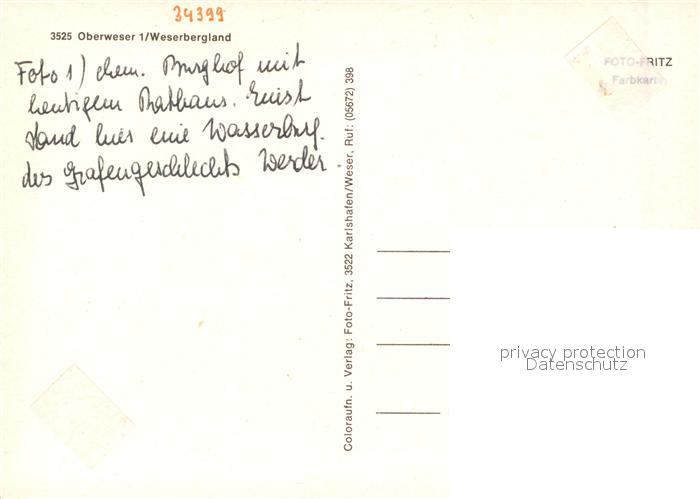 34399
3525 Oberweser 1/Weserbergland
Foto 1) ehem. Burghof mit
heutigem Rathaus. Einst
stand hier eine Wasserburg.
des Grafengeschlechts Werder.
Coloraufn. u. Verlag: Foto-Fritz, 3522 Karlshafen/Weser, Ruf: (05672) 398
FOTO-FRITZ
Farbkarte
privacy protection
Datenschutz